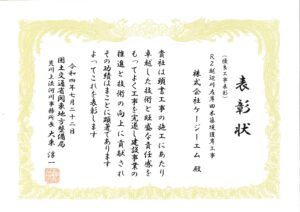 表彰状
(優良工事表彰)
R2越辺川左岸田木築堤護岸工事
株式会社ケージーエム 殿
貴社は頭書工事の施工にあたり
卓越した技術と旺盛な責任感を
もってよく工事を完遂し建設事業の
推進と技術の向上に貢献され
その功績はまことに顕著であります
よってこれを表彰します
令和四年七月二十二日
国土交通省関東地方整備局
荒川上流河川事務所長 大東 淳一